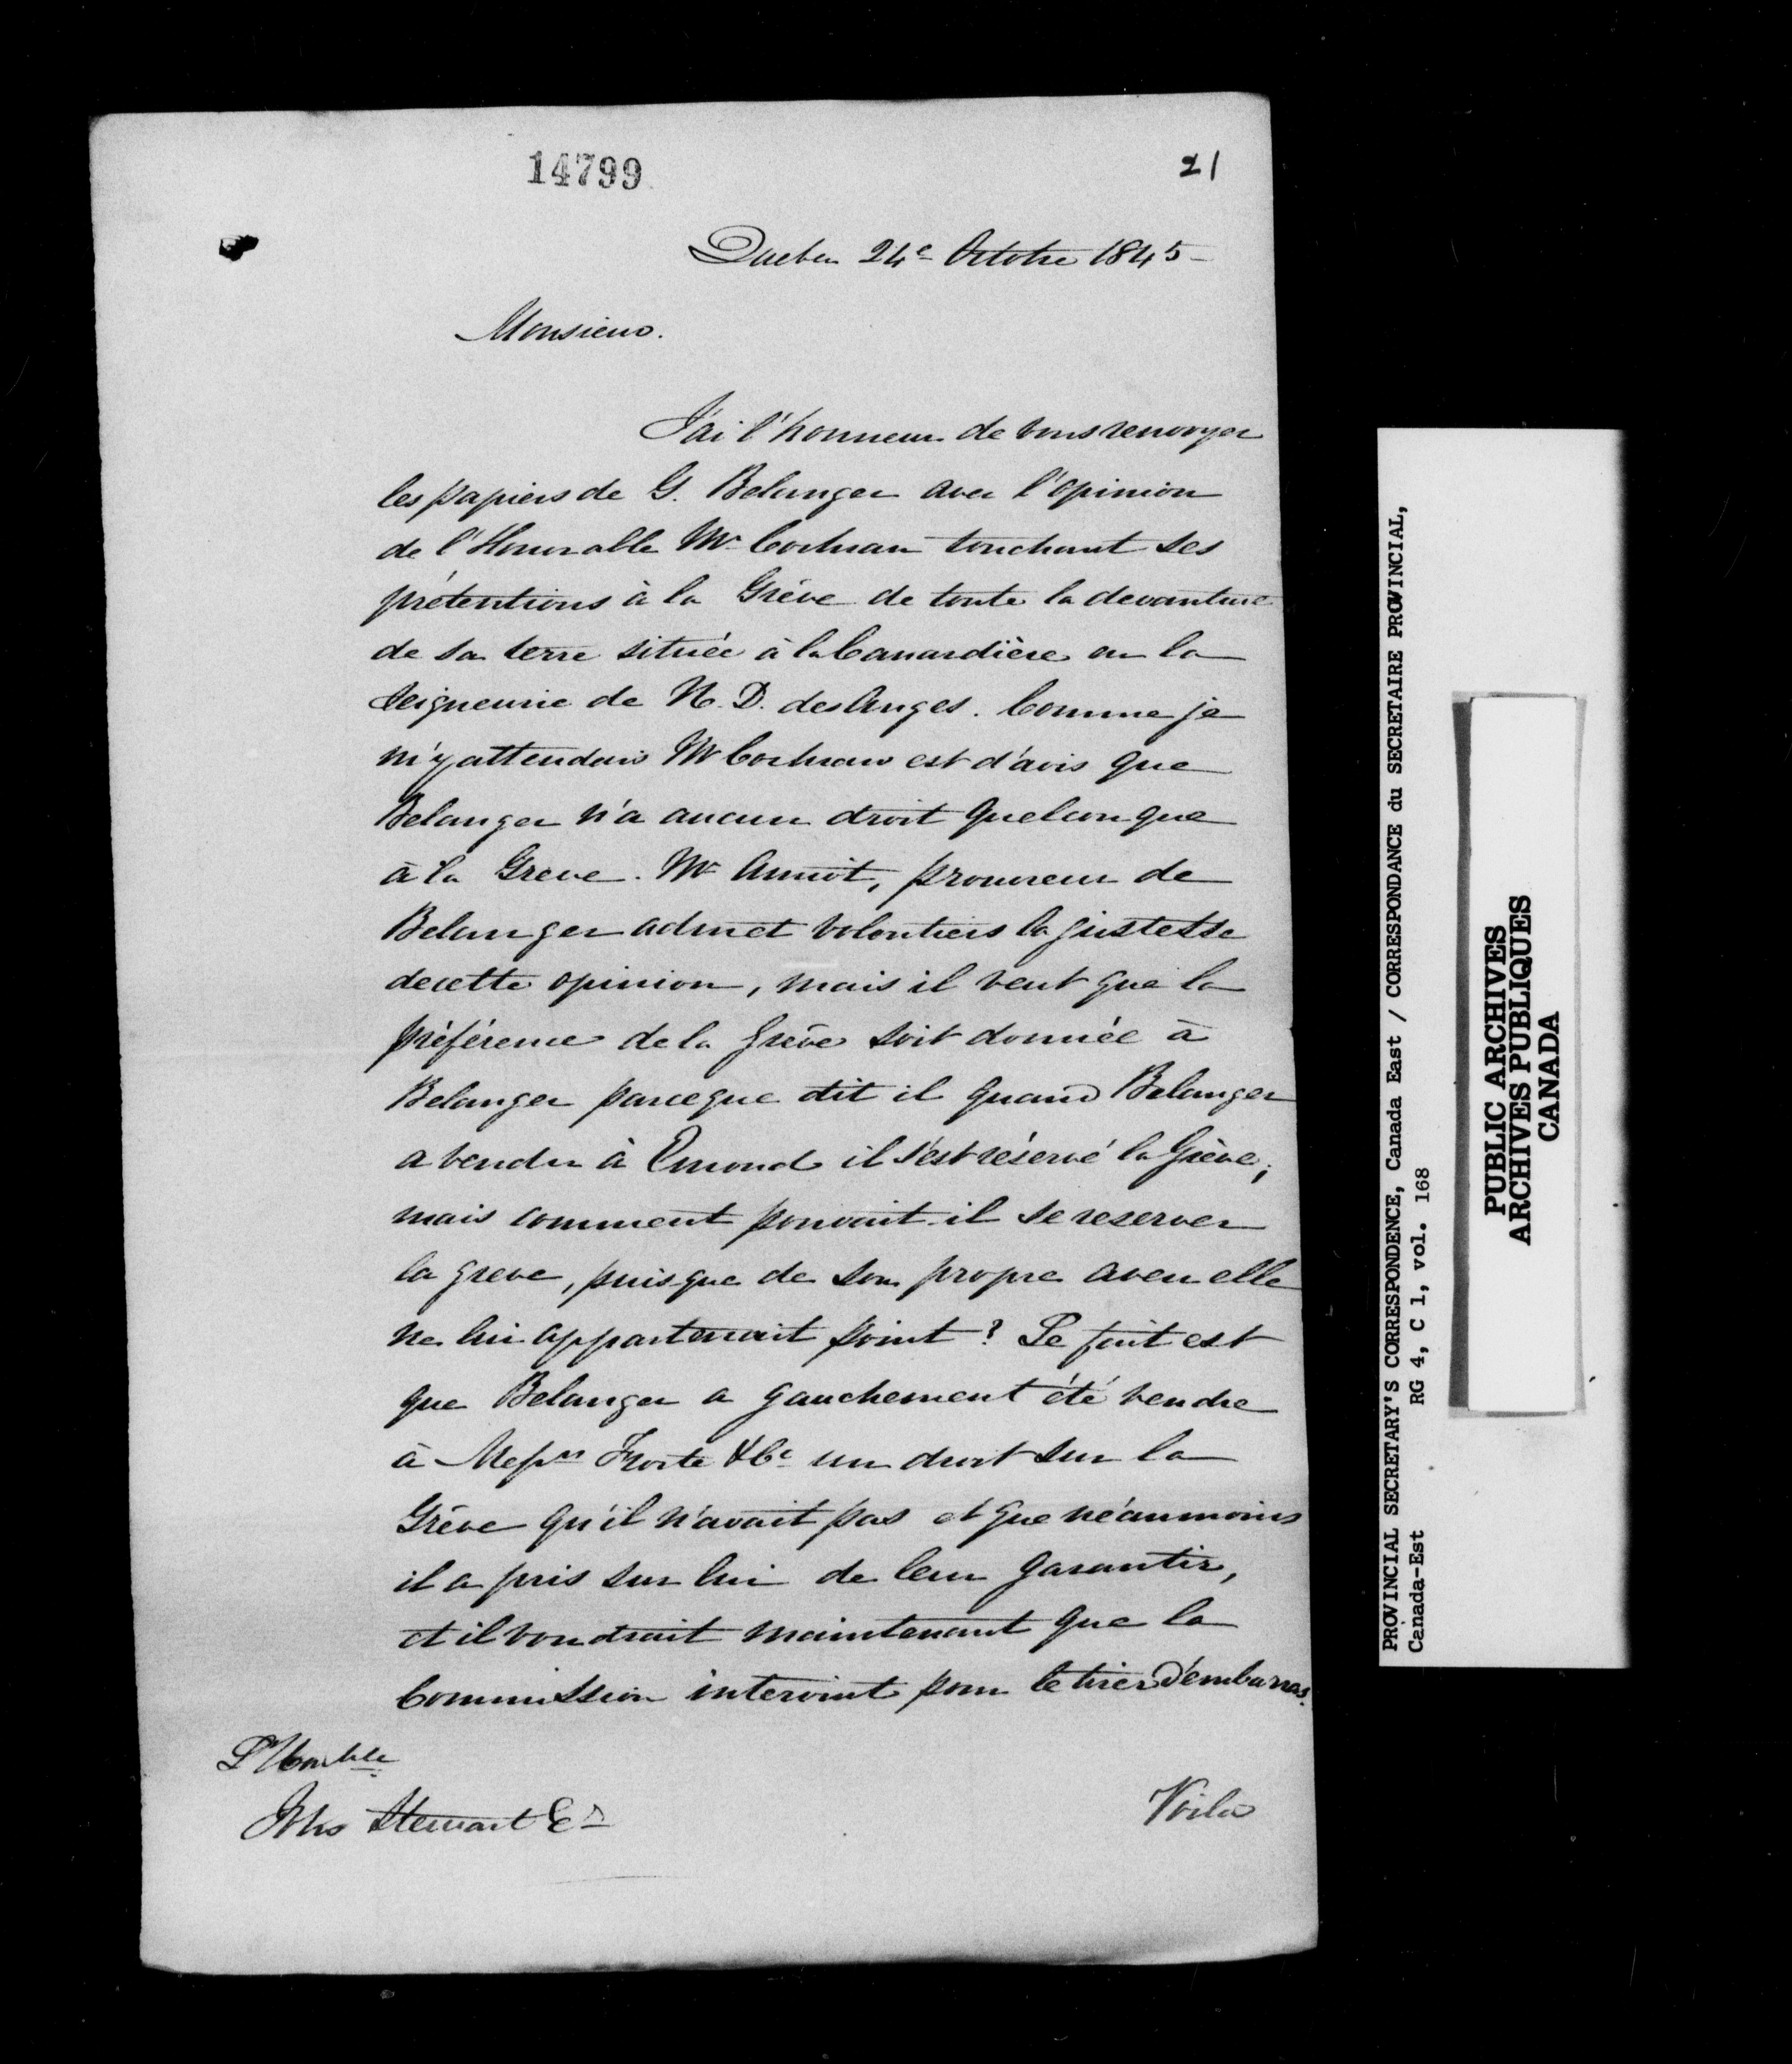 14799
21
Quebec 24e Octobre 1845
Monsieur.
J'ai l'honneur de vous renvoyer
les papiers de G. Belanger avec l'opinion
de l'Honorable Mr Cochran touchant ses
prétentions à la Grève de toute la devanture
de sa terre située à la Canardière en la
Seigneurie de N. D. des Anges. Comme je
m'y attendais Mr Cochran est d'avis que
Belanger n'a aucun droit quelconque
à la Greve. Mr Amiot, procureur de
Belanger admet volontiers la justesse
de cette opinion, mais il veut que la
préférence de la Grève soit donnée à
Belanger parceque dit il quand Belanger
a vendu à Emond il s'est réservé la Grève;
mais comment pouvait-il se reserver
la greve, puisque de son propre aveu elle
ne lui appartenait point? Le fait est
que Belanger a gauchement été vendre
à Messrs Froste & Ce un droit sur la
Grève qu'il n'avait pas et que néaumoins
il a pris sur lui de leur garantir,
et il voudrait maintenant que la
Commission intervint pour le tirer d'embarras.
L'Honble
John Stewart Er
Voilà
PROVINCIAL SECRETARY'S CORRESPONDENCE, Canada East / CORRESPONDANCE du SECRETAIRE PROVINCIAL,
Canada-Est RG 4, C 1, vol. 168
PUBLIC ARCHIVES
ARCHIVES PUBLIQUES
CANADA